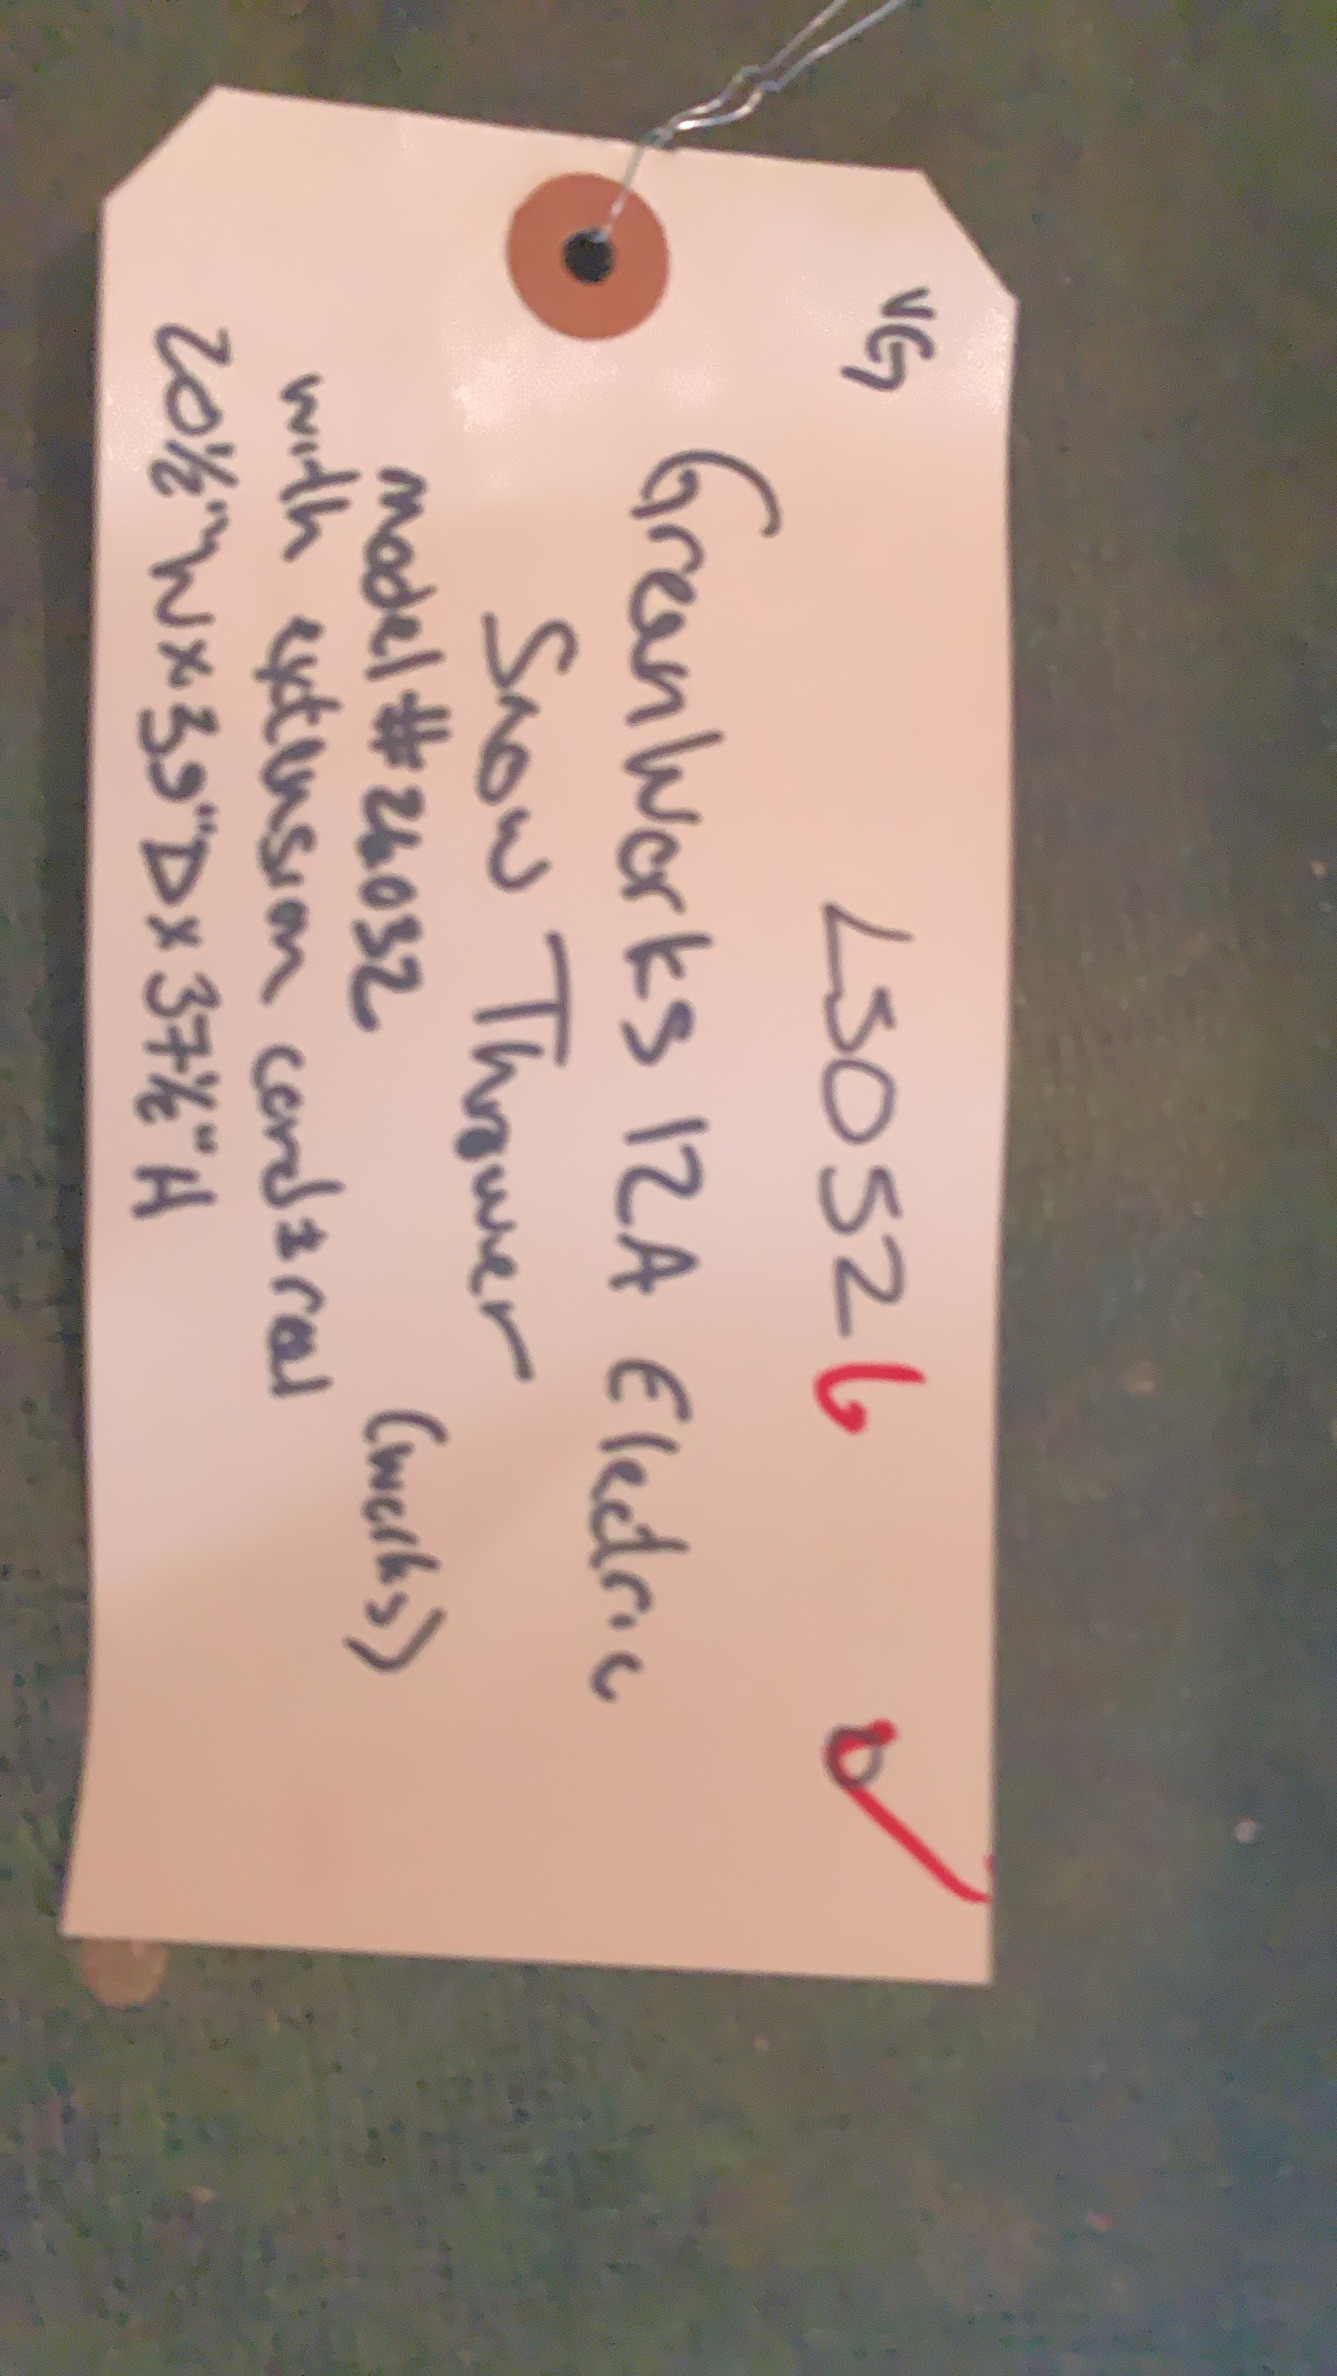 VG L30526
GreenWorks 12A Electric
Snow Thrower
model # 26032 (works)
with extension cord & reel
20½" W x 35" D x 37½" H